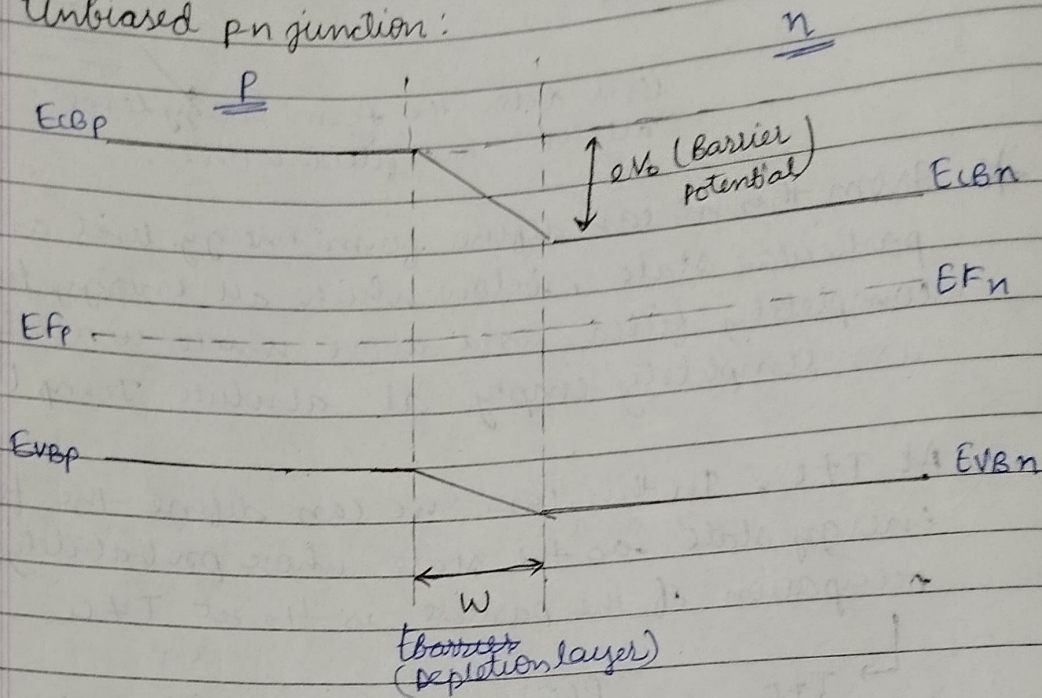 Unbiased pn junction:
P
n
ECBp
eVo (Barrier
potential)
ECBn
EFp
EFn
EVBp
EVBn
W
(Depletion layer)